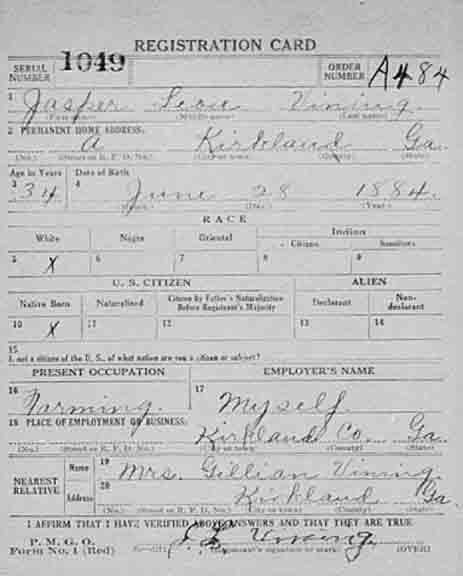 REGISTRATION CARD
SERIAL NUMBER 1049 ORDER NUMBER A484
1 Jasper Leon Vining
(First name) (Middle name) (Last name)
2 PERMANENT HOME ADDRESS:
A Kirkland Ga.
(No.) (Street or R. F. D. No.) (City or town) (County) (State)
Age in Years Date of Birth
3 34 4 June 28 1884.
(Month.) (Day.) (Year.)
RACE
White Negro Oriental Indian
Citizen Noncitizen
5 X 6 7 8 9
U. S. CITIZEN ALIEN
Native Born Naturalized Citizen by Father's Naturalization Before Registrant's Majority Declarant Non-declarant
10 X 11 12 13 14
15
If not a citizen of the U. S., of what nation are you a citizen or subject?
PRESENT OCCUPATION EMPLOYER'S NAME
16 Farming. 17 Myself
18 PLACE OF EMPLOYMENT OR BUSINESS:
Kirkland Co. Ga.
(No.) (Street or R. F. D. No.) (City or town) (County) (State)
NEAREST RELATIVE
Name 19 Mrs. Gillian Vining
Address 20 Kirkland Ga.
(No.) (Street or R. F. D. No.) (City or town) (County) (State)
I AFFIRM THAT I HAVE VERIFIED ABOVE ANSWERS AND THAT THEY ARE TRUE
P. M. G. O.
Form No. 1 (Red) J. L. Vining
(Registrant's signature or mark) (OVER)